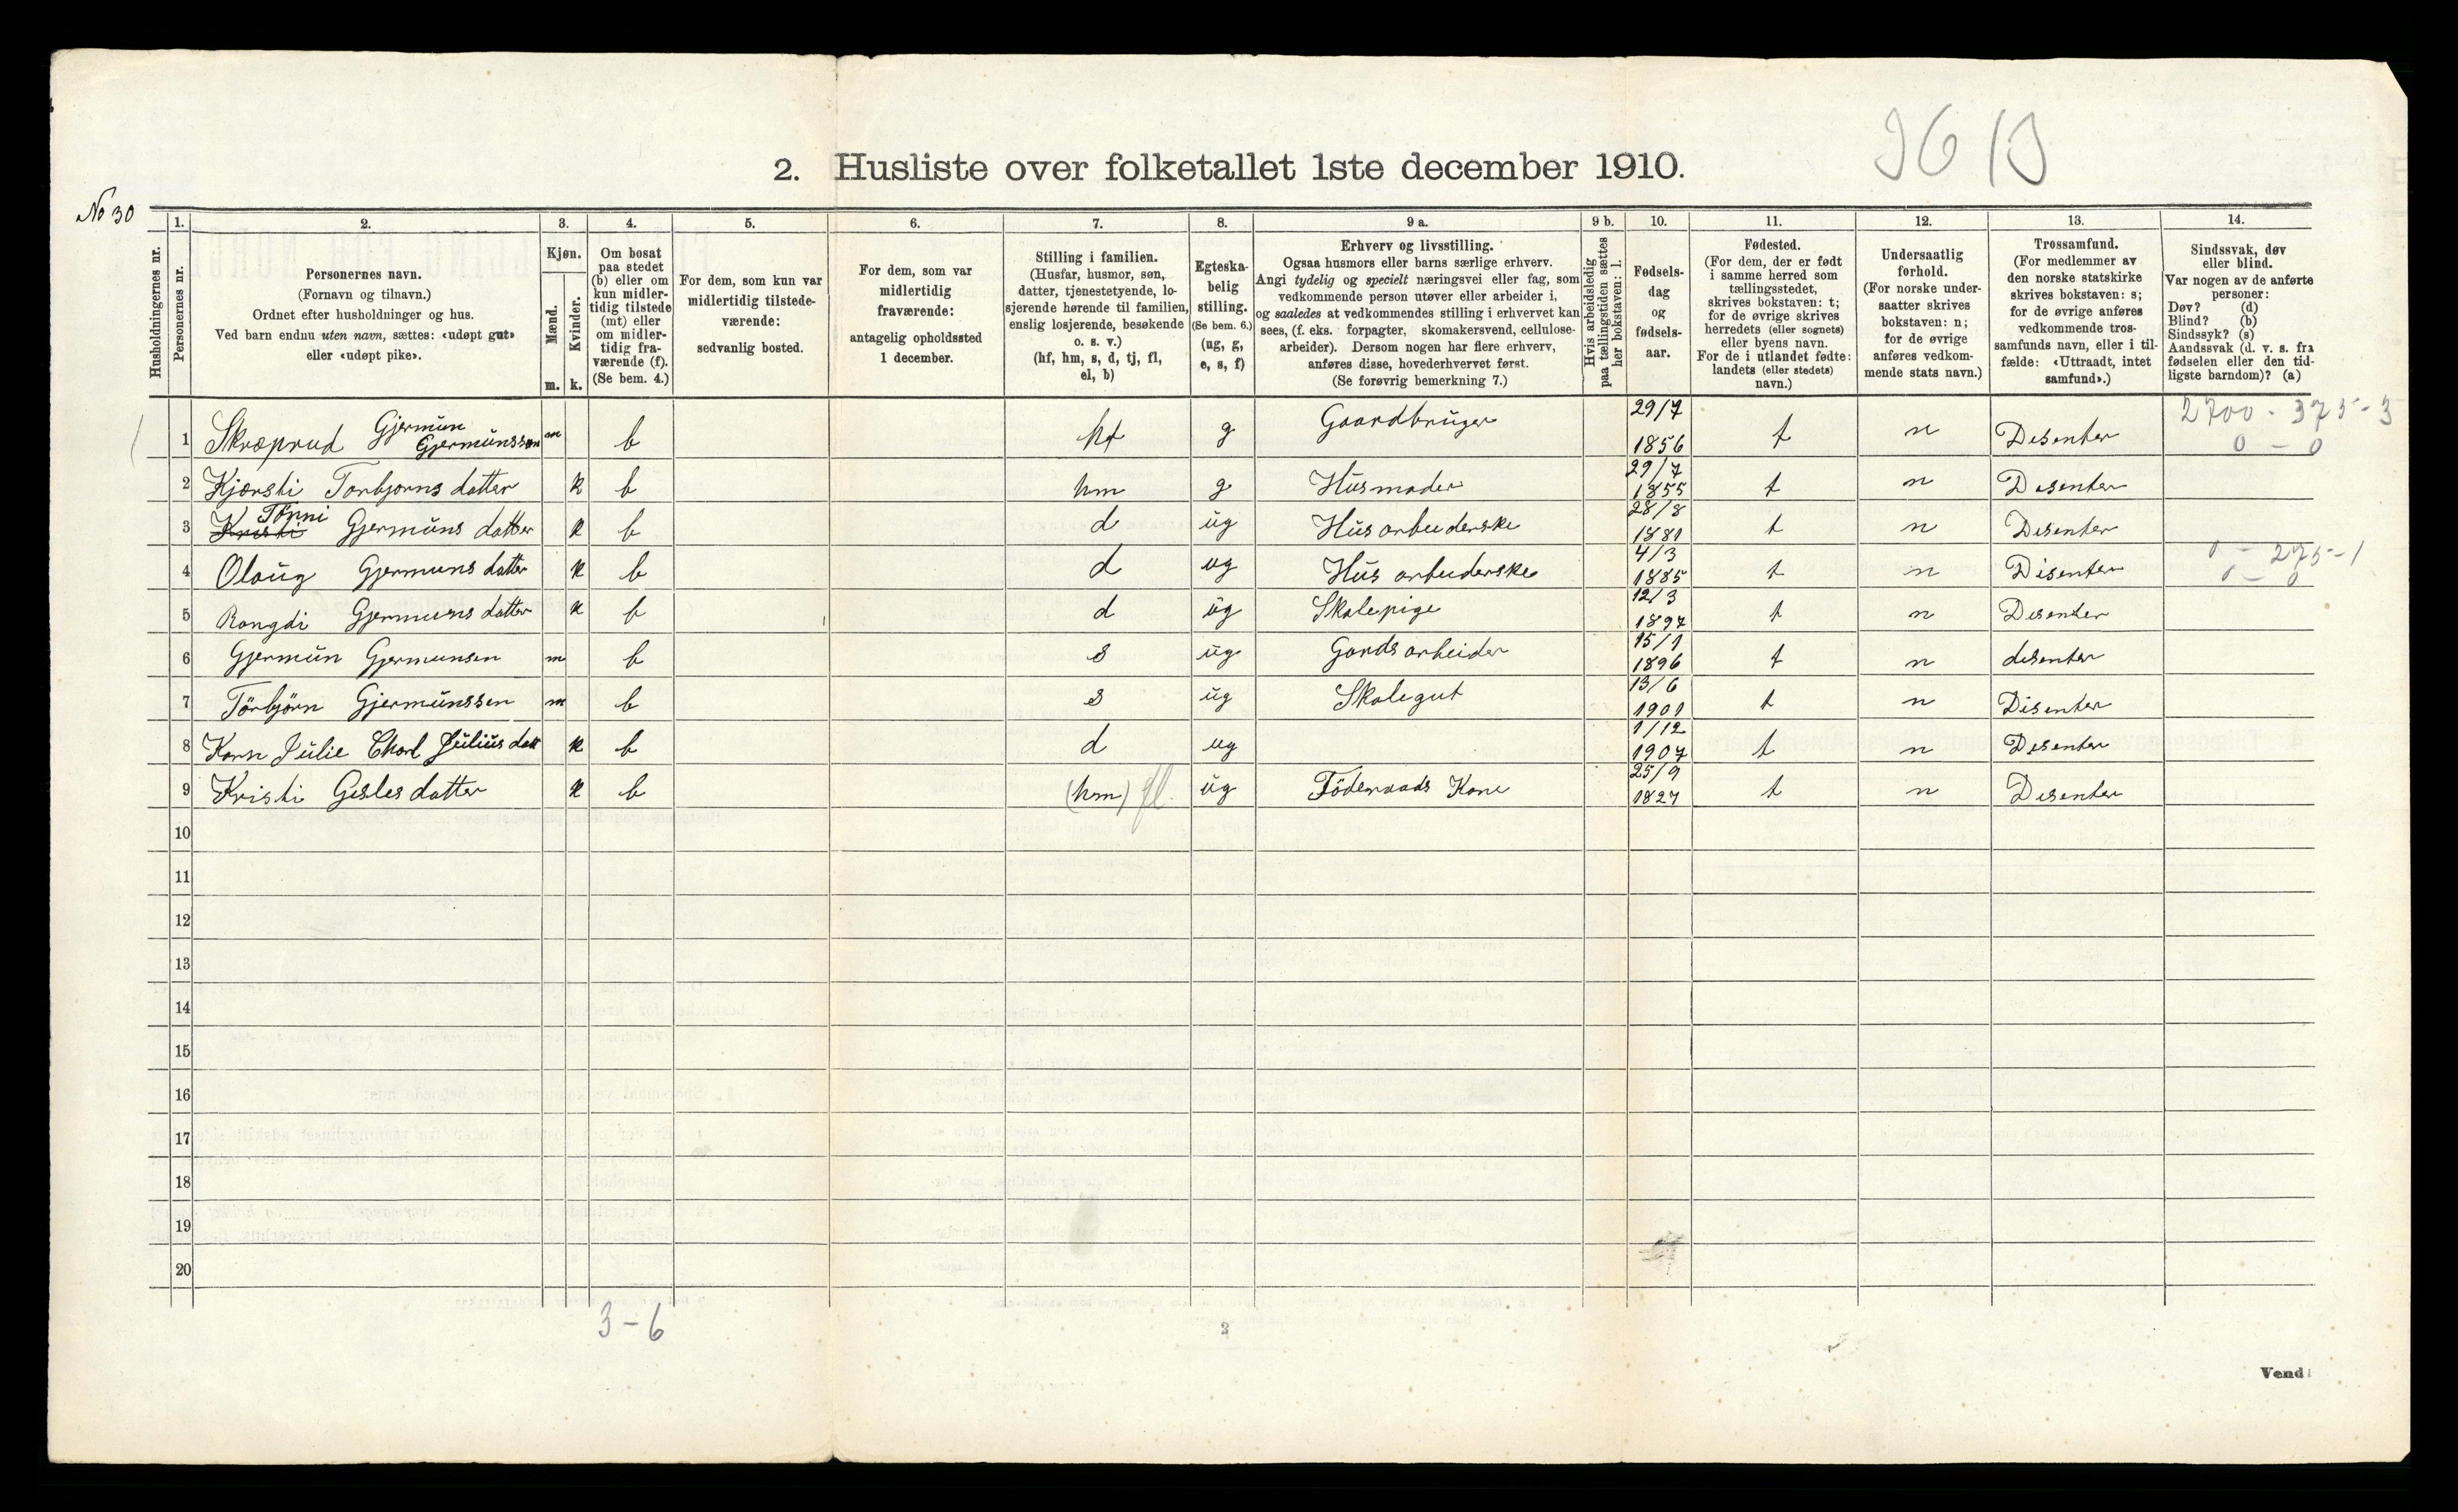 36 B
2. Husliste over folketallet 1ste december 1910.
No 30
Husholdningernes nr.
1.
Personernes nr.
2.
Personernes navn.
(Fornavn og tilnavn.)
Ordnet efter husholdninger og hus.
Ved barn endnu uten navn, sættes: «udøpt gut»
eller «udøpt pike».
3.
Kjøn.
Mænd.
m.
Kvinder.
k.
4.
Om bosat
paa stedet
(b) eller om
kun midler-
tidig tilstede
(mt) eller
om midler-
tidig fra-
værende (f).
(Se bem. 4.)
5.
For dem, som kun var
midlertidig tilstede-
værende:
sedvanlig bosted.
6.
For dem, som var
midlertidig
fraværende:
antagelig opholdssted
1 december.
7.
Stilling i familien.
(Husfar, husmor, søn,
datter, tjenestetyende, lo-
sjerende hørende til familien,
enslig losjerende, besøkende
o. s. v.)
(hf, hm, s, d, tj, fl,
el, b)
8.
Egteska-
belig
stilling.
(Se bem. 6.)
(ug, g,
e, s, f)
9 a.
Erhverv og livsstilling.
Ogsaa husmors eller barns særlige erhverv.
Angi tydelig og specielt næringsvei eller fag, som
vedkommende person utøver eller arbeider i,
og saaledes at vedkommendes stilling i erhvervet kan
sees, (f. eks. forpagter, skomakersvend, cellulose-
arbeider). Dersom nogen har flere erhverv,
anføres disse, hovederhvervet først.
(Se forøvrig bemerkning 7.)
9 b.
Hvis arbeidsledig
paa tællingstiden sættes
her bokstaven: l.
10.
Fødsels-
dag
og
fødsels-
aar.
11.
Fødested.
(For dem, der er født
i samme herred som
tællingsstedet,
skrives bokstaven: t;
for de øvrige skrives
herredets (eller sognets)
eller byens navn.
For de i utlandet fødte:
landets (eller stedets)
navn.)
12.
Undersaatlig
forhold.
(For norske under-
saatter skrives
bokstaven: n;
for de øvrige
anføres vedkom-
mende stats navn.)
13.
Trossamfund.
(For medlemmer av
den norske statskirke
skrives bokstaven: s;
for de øvrige anføres
vedkommende tros-
samfunds navn, eller i til-
fælde: «Uttraadt, intet
samfund».)
14.
Sindssvak, døv
eller blind.
Var nogen av de anførte
personer:
Døv? (d)
Blind? (b)
Sindssyk? (s)
Aandssvak (d. v. s. fra
fødselen eller den tid-
ligste barndom)? (a)
1 Skræprud Gjermun Gjermunsson m b hf g Gaardbruger 29/7 1856 t n Disenter 2700 - 375 - 3
0 - 0
2 Kjersti Torbjorns datter k b hm g Husmoder 29/7 1855 t n Disenter
3 Kristi Tonni Gjermuns datter k b d ug Hus arbeiderske 28/8 1881 t n Disenter
4 Olaug Gjermuns datter k b d ug Hus arbeiderske 4/3 1885 t n Disenter 0 - 275 - 1
0 - 0
5 Rangdi Gjermuns datter k b d ug Skolepige 12/3 1897 t n Disenter
6 Gjermun Gjermunsen m b s ug Gards arbeider 15/1 1896 t n disenter
7 Törbjörn Gjermunssen m b s ug Skolegut 13/6 1901 t n Disenter
8 Karn Julie Charl Julius datt k b d ug 1/12 1907 t n Disenter
9 Kristi Gisles datter k b (hm) fl. ug Föderaads Kone 25/9 1827 t n Disenter
10
11
12
13
14
15
16
17
18
19
20
3 - 6
Vend!